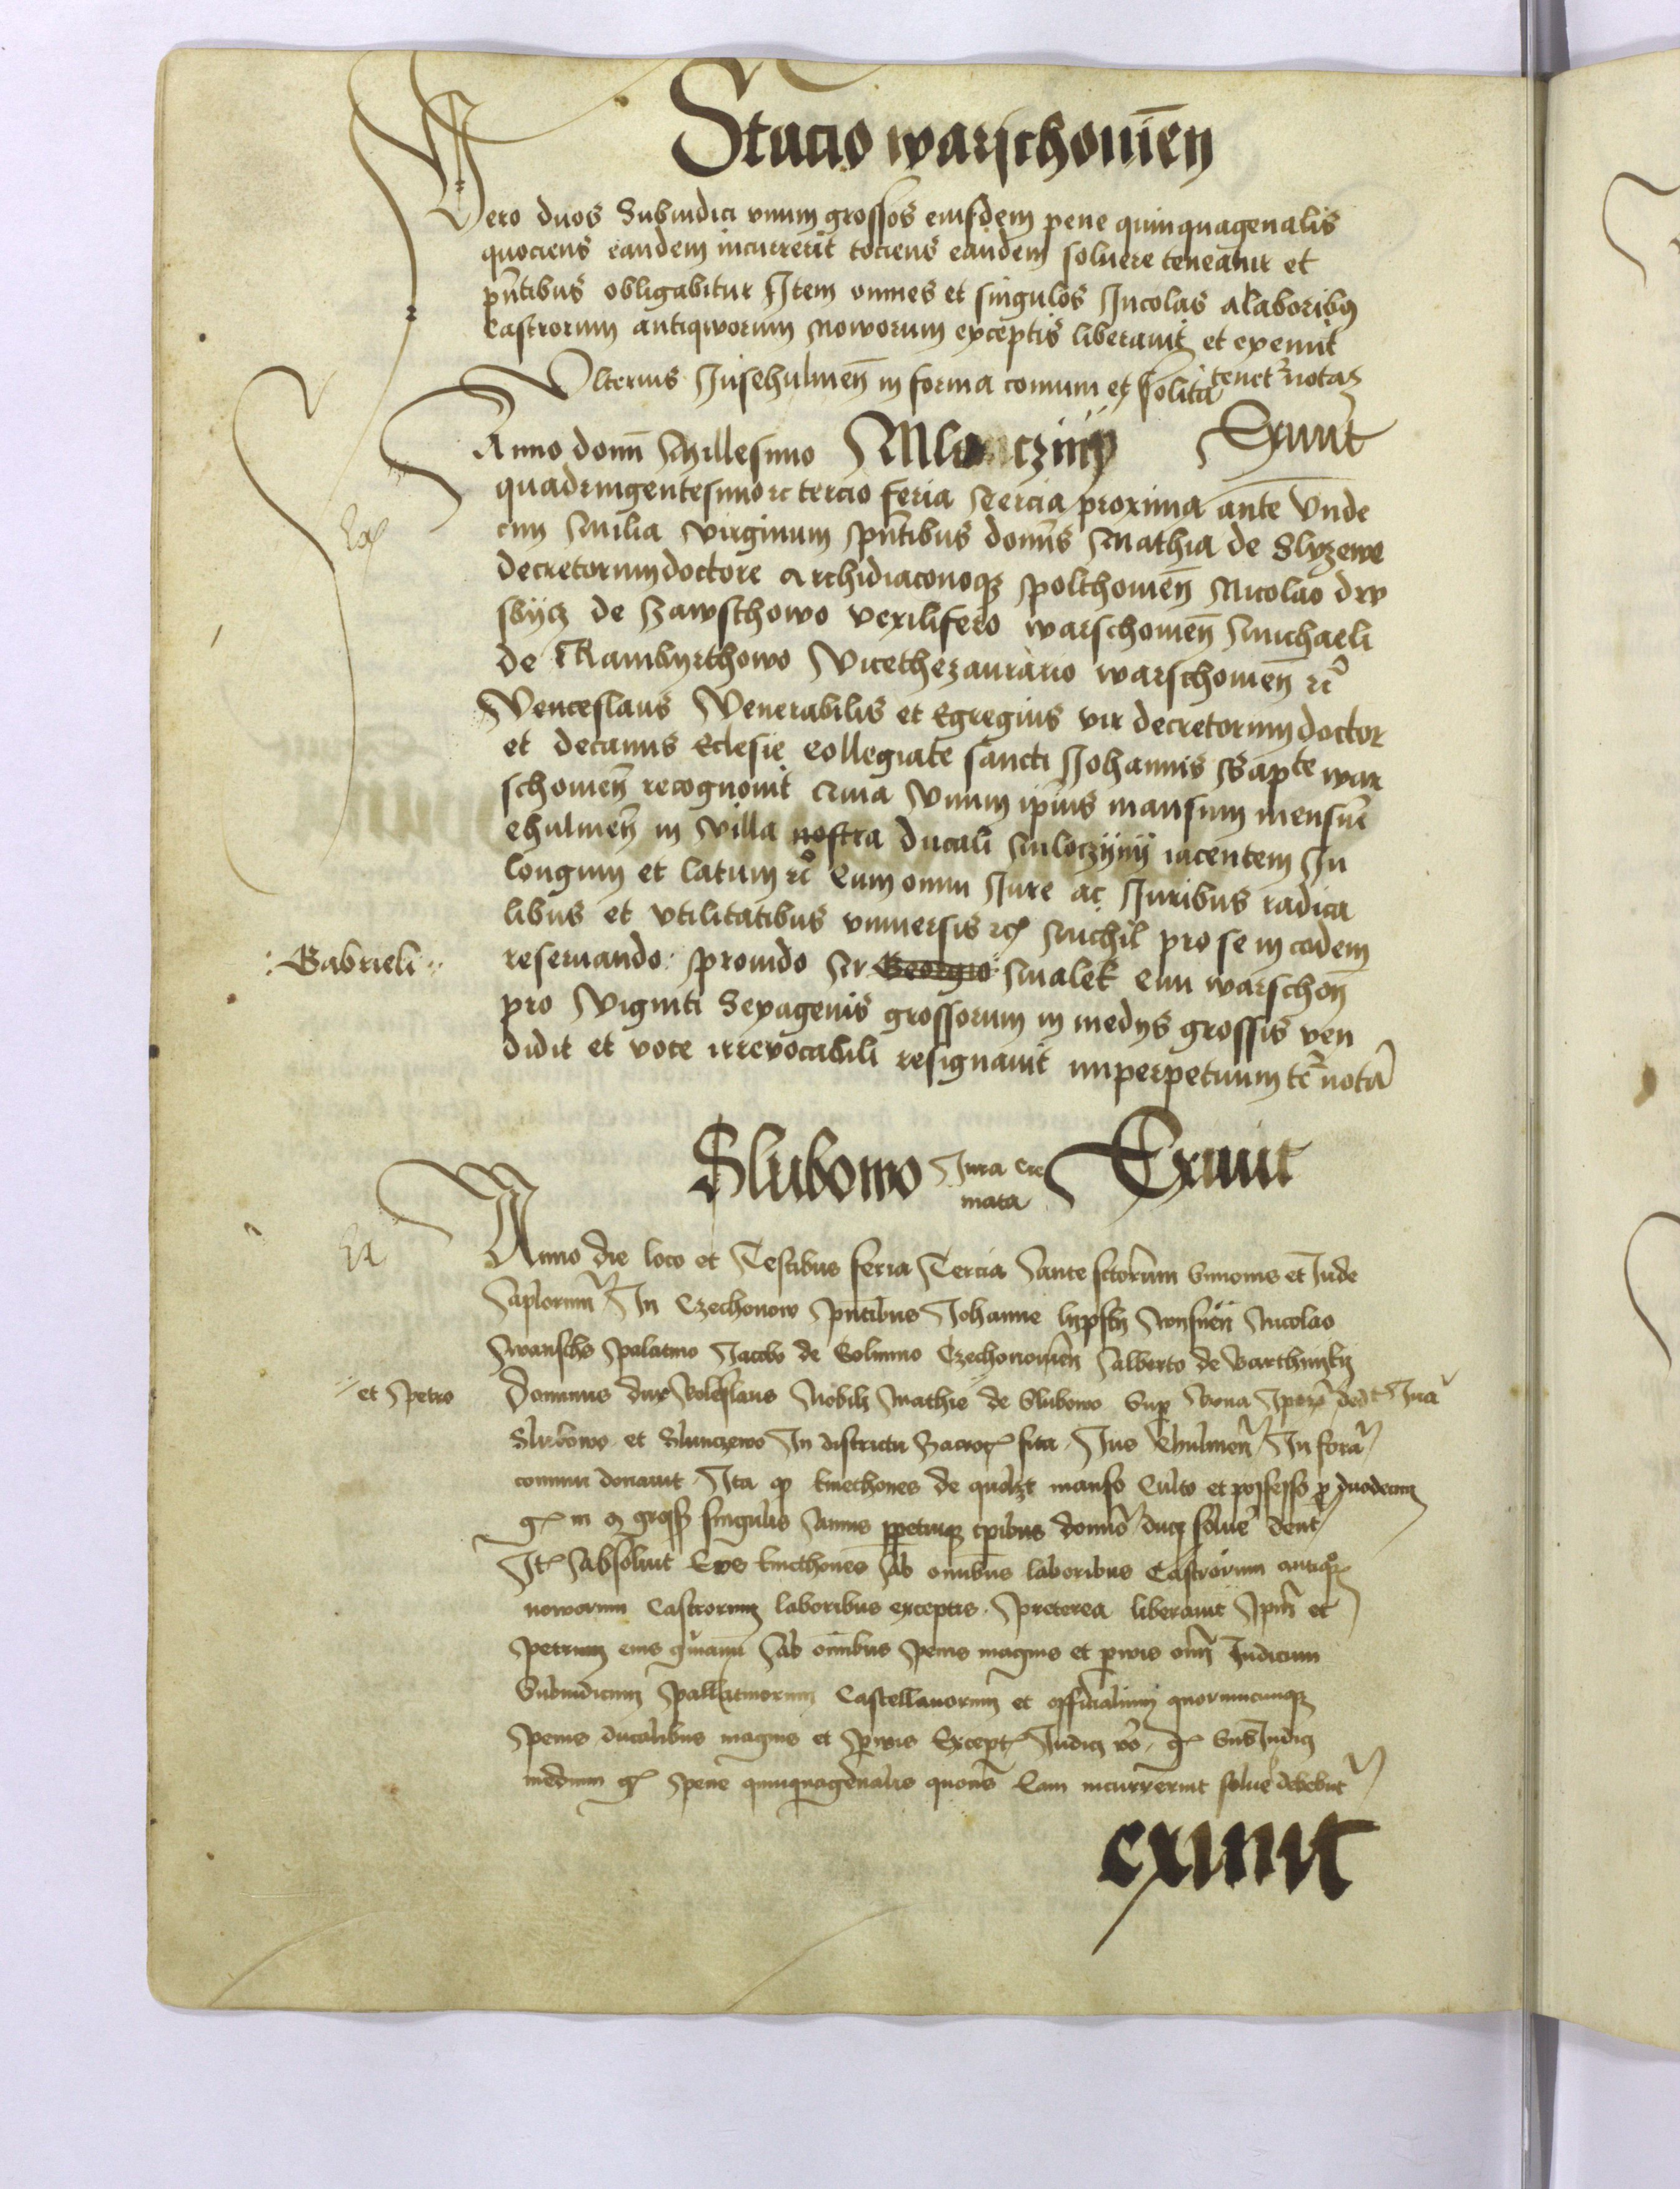 Stacio warschouien̄
Vero duos Subiudici vnum grossos eiusdem pene quinquagenalis
quociens eandem incurrerit tociens eandem soluere teneatur et
pn̄tibus obligabitur Item omnes et singulos Incolas a laboribus
Castrorum antiqworum noworum exceptis liberauit et exemit
Vlterius Jus chulmen̄ in forma comuni et solita tenetr̄ nota
Anno domī Millesimo Mloczini Exiuit
quadringentesimo rc tercio feria tercia proxima ante Vnde
cim milia virginum pn̄tibus domīs Mathia de Slyzewe
decretorum doctore Archidiaconoqȝ polthouien̄ Nicolao drv
sbycz de Zawschowo vexilifero warschouien̄ Michaeli
de Rambyrthowo Vicethezaurario warschouien̄ rc
Wenceslaus Venerabilis et Egregius vir decretorum doctor
et decanus Eclesie collegiate sancti Johannis Bapte war
schouien̄ recognouit Quia Vnum ipsius mansum mensure
chulmen̄ in villa nostra ducali Mloczyny iacentem In
longum et latum rc Cum omni Jure ac Juribus radica
libus et vtilitatibus vniuersis rc Nichil pro se in eodem
:Gabrieli: reseruando prouido vir Georgio Malek Ciui warschon̄
pro Viginti Sexagenis grossorum in medys grossis ven
didit et voce irrevocabili resignauit imperpetuum tr̄ nota
Slubowo Jura cre
mata Exiuit
Anno die loco et Testibus feria Tercia Ante sctorum Simonis et Jude
Aplorum In Czechonow pn̄tibus Johanne lypsky Nicolao
Palatino Jacobo de Golimino Czechonouien̄ Alberto de Warthinky
et Petro Dominus dux Boleslaus Nobili Mathie de Slubowo Sup bona Ipoꝝ dedit Jura
Slubowo et Slunczewo In districtu Zacroc sita Jus Chulmen̄ In forā
comuni donauit Ita qd kmethones de quolʒt manso Culto et possesso p duodecim
gr in gross singulis Annis ppetuisqȝ tpibus domō duci solue dent
It Absoluit Eos kmethones Ab omnibus laboribus Castrorum antiqoꝝ
noworum Castrorum laboribus exceptis Preterea liberauit Ipm̄ et
Petrum eius gmanū Ab omnibus Penis magnis et pruis om̄ Iudicum
Subiudicum Pallatinorum Castellanorum et officialium quorumcunqȝ
Penis ducalibus magnis et pruis Except Judici vo gr Subiudici
medium gr Pene quinquagenalis quons Eam incurrerint solue debebut
exiuit